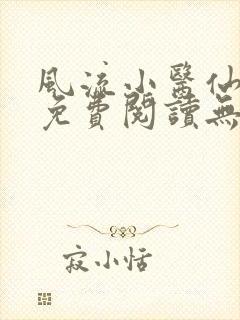 風流小醫仙
免費閱讀無
寂小恬